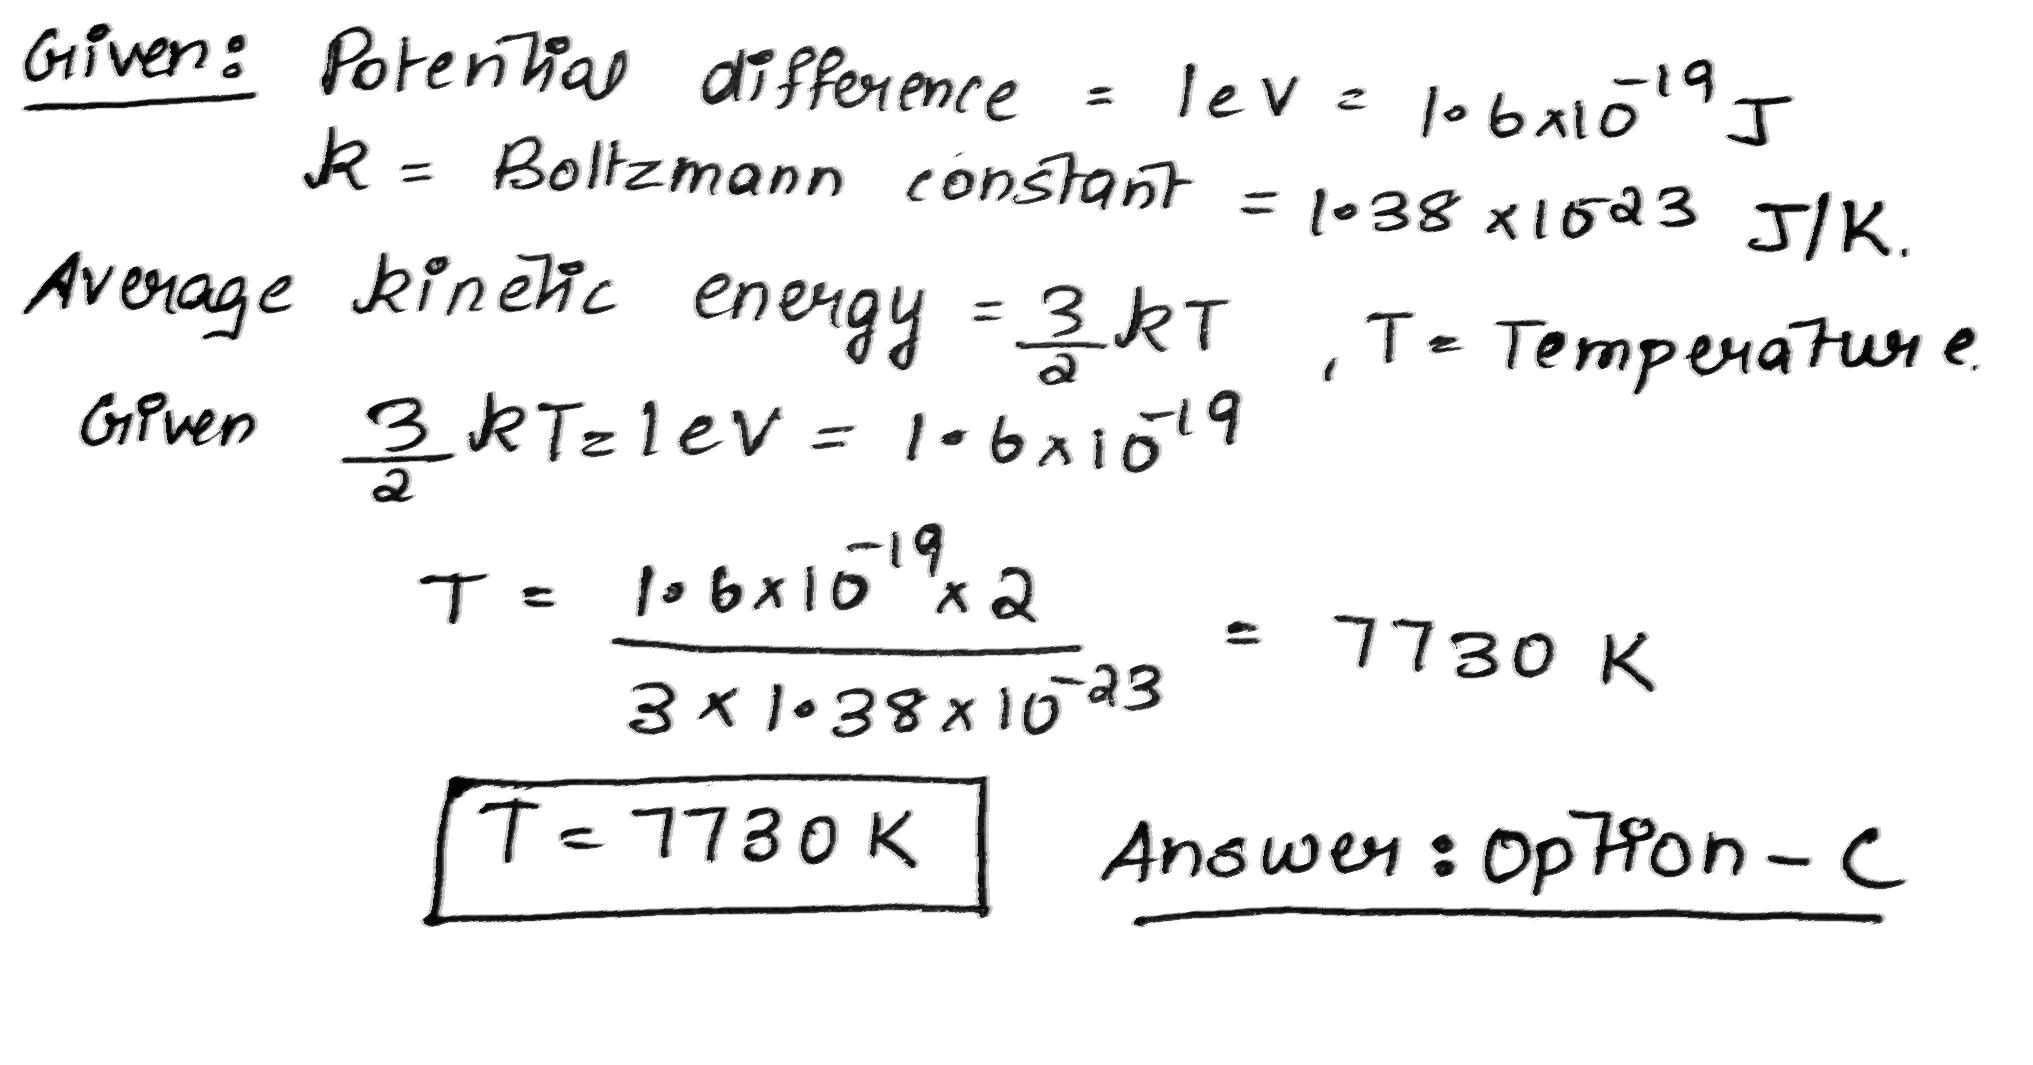 Given: Potential difference = 1 eV = 1.6×10⁻¹⁹ J
k = Boltzmann constant = 1.38 ×10⁻²³ J/K.
Average kinetic energy = 3/2 kT , T = Temperature.
Given 3/2 kT = 1 eV = 1.6×10⁻¹⁹
T = 1.6×10⁻¹⁹ × 2 / 3 × 1.38 × 10⁻²³ = 7730 K
T = 7730 K Answer : Option - C